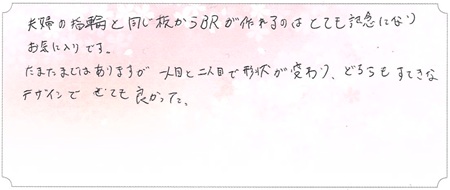 夫婦の指輪と同じ板からBRが作れるのはとても記念になり
お気に入りです。
たまたまではありますが 一人目と二人目で形状が変わり、どちらもすてきな
デザインで とても良かった。